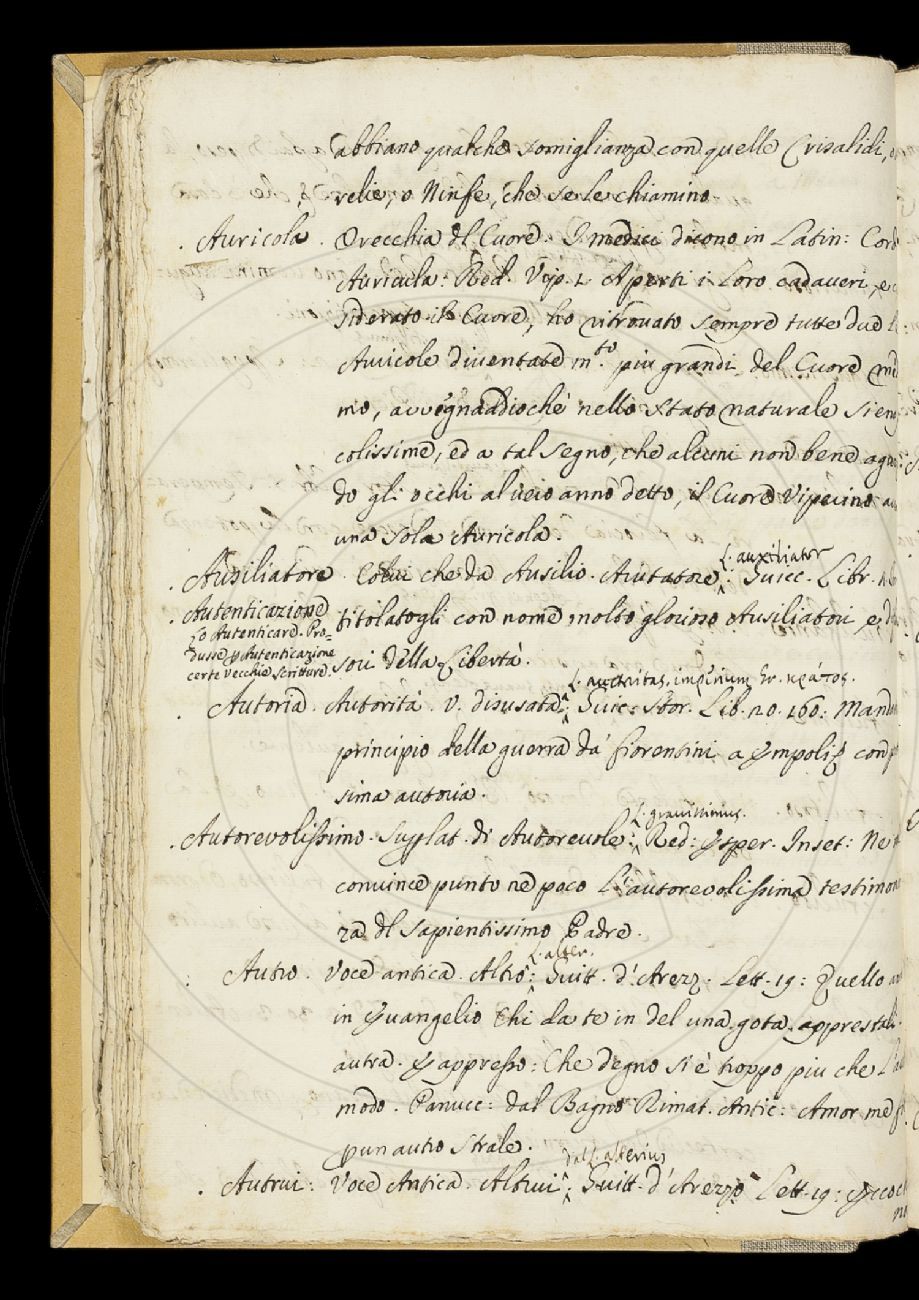 abbiano qualche somiglianza con quelle Crisalidi,
relie, o Ninfe, che se le chiamino
Auricola. Orecchia dl Cuore. I medici dicono in Latin: Cord
Auricula: Red. Vip. 1. Aperti i loro cadaveri, e
siderato il Cuore, ho ritrovato sempre tutte due
Auricole diventate m.to piu grandi del Cuore
mo, avvegnadioché nello stato naturale sien
colissime, ed a tal segno, che alcuni non bene
do gli occhi al vero anno detto, il Cuore Viperino
una sola Auricola.
L. auxiliator
Ausiliatore. Colui che da Ausilio. Aiutatore: Guicc. Libr.
Autenticazione
Lo Autenticare. Pro=
dusse p Autenticazione
certe vecchie scritture.
titolatogli con nome molto glorioso Ausiliatori, e
sori della Libertà.
L. auctoritas, imperium Gr. κράτος.
Autoria. Autorità. v. disusata: Guic: Stor. Lib. 20. 160: Mand
principio della guerra da' fiorentini a Empoli con
sima autoria.
L. gravissimus.
Autorevolissimo. Suplat. di Autorevole: Red: Esper. Inset: Ne
convince punto ne poco L'autorevolissima testimon
za dl sapientissimo Padre.
L. alter.
Autro. Voce antica. Altro: Guitt. d'Arezz. Lett. 19: Quello
in Evangelio Chi da te in del una gota apprestali
autra. E appresso: Che degno si è troppo piu che L'
modo. Panucc: dal Bagno Rimat. Antic: Amor me
p un autro strale.
dal L. alterius
Autrui: Voce Antica. Altrui: Guitt. d'Arezzo Lett. 19: Ecco